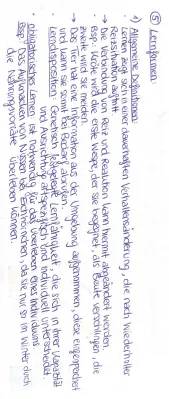 ⑤ Lernformen
a) Allgemeine Definitionen
• Lernen zeigt sich in einer dauerhaften Verhaltensänderung, die nach wiederholter
Reizsituation auftritt
• Die Verbindung von Reiz und Reaktion kann hiermit abgeändert werden.
Bsp. Kröte wird die erste Wespe, der sie begegnet, als Beute verschlingen, die
zweite wird sie meiden.
• Das Tier hat eine Information aus der Umgebung aufgenommen, diese eingespeichert
und kann sie somit bei Bedarf abrufen.
• Lerndisposition: genetisch festgelegte Lernfähigkeit, die sich in ihrer Variabilität
und Ausprägung artspezifisch und individuell unterscheidet
• obligatorisches Lernen: ist notwendig für das Überleben eines Individuums
Bsp. Das Aufknacken von Nüssen bei Eichhörnchen, da sie nur so im Winter durch
die Nahrungsvorräte überleben können.